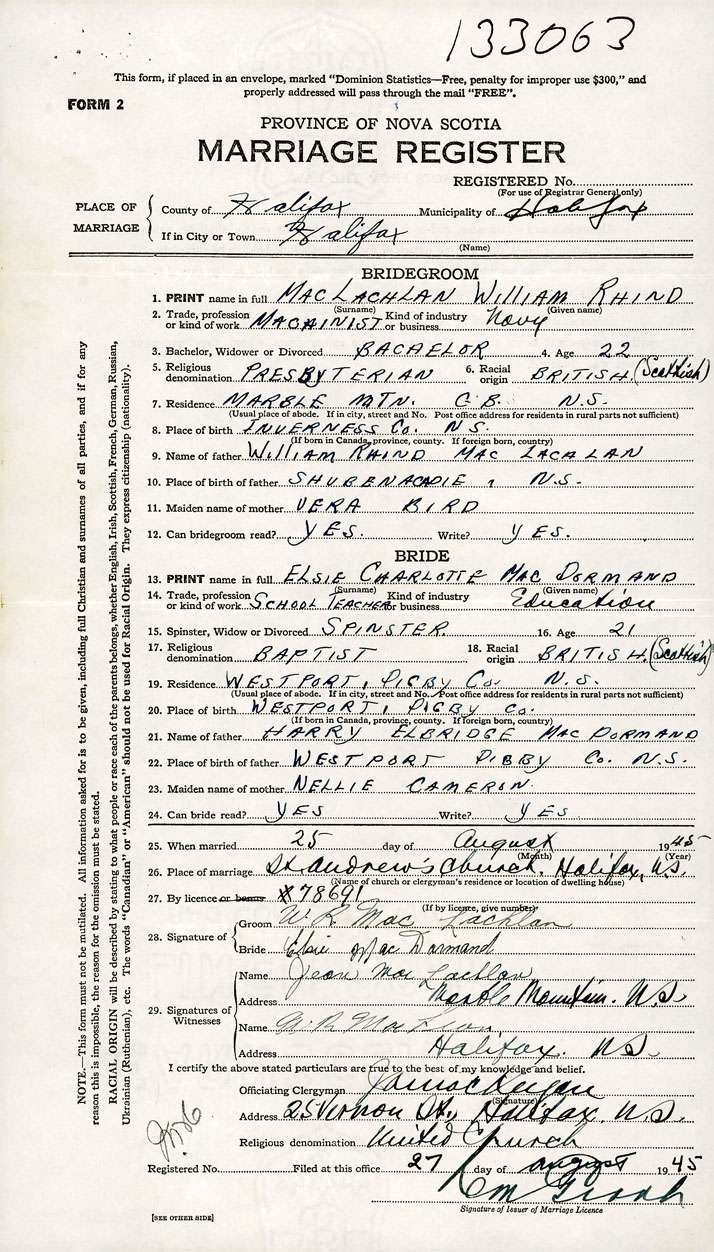 133063
This form, if placed in an envelope, marked “Dominion Statistics—Free, penalty for improper use $300,” and
properly addressed will pass through the mail “FREE”.
FORM 2
PROVINCE OF NOVA SCOTIA
MARRIAGE REGISTER
REGISTERED No.
(For use of Registrar General only)
PLACE OF MARRIAGE
County of Halifax Municipality of Halifax
If in City or Town Halifax
(Name)
BRIDEGROOM
1. PRINT name in full MACLACHLAN WILLIAM RHIND
(Surname) (Given name)
2. Trade, profession or kind of work MACAINIST Kind of industry or business Navy
3. Bachelor, Widower or Divorced BACHELOR 4. Age 22
5. Religious denomination PRESBYTERIAN 6. Racial origin BRITISH (Scottish)
7. Residence MARBLE MTN. C.B. N.S.
(Usual place of abode. If in city, street and No. Post office address for residents in rural parts not sufficient)
8. Place of birth INVERNESS Co. N.S.
(If born in Canada, province, county. If foreign born, country)
9. Name of father WILLIAM RHIND MAC LACALAN
10. Place of birth of father SHUBENACADIE, N.S.
11. Maiden name of mother VERA BIRD
12. Can bridegroom read? YES. Write? YES.
BRIDE
13. PRINT name in full ELSIE CHARLOTTE MAC DORMAND
(Surname) (Given name)
14. Trade, profession or kind of work SCHOOL TEACHER Kind of industry or business Education
15. Spinster, Widow or Divorced SPINSTER. 16. Age 21
17. Religious denomination BAPTIST 18. Racial origin BRITISH. (Scottish)
19. Residence WESTPORT, DIGBY Co. N.S.
(Usual place of abode. If in city, street and No. Post office address for residents in rural parts not sufficient)
20. Place of birth WESTPORT, DIGBY Co.
(If born in Canada, province, county. If foreign born, country)
21. Name of father HARRY ELBRIDGE MAC DORMAND
22. Place of birth of father WESTPORT DIBBY Co. N.S.
23. Maiden name of mother NELLIE CAMERON.
24. Can bride read? YES Write? YES
25. When married 25 day of August 1945
(Month) (Year)
26. Place of marriage St. Andrew's Church, Halifax, N.S.
(Name of church or clergyman's residence or location of dwelling house)
27. By licence or banns #78691
(If by licence, give number)
28. Signature of
Groom W R Mac Lachlan
Bride Elsie MacDormand
29. Signatures of Witnesses
Name Jean MacLachlan
Address Marble Mountain. N.S.
Name
Address Halifax. N.S.
I certify the above stated particulars are true to the best of my knowledge and belief.
Officiating Clergyman
(Signature)
Address 25 Vernon St., Halifax, N.S.
Religious denomination United Church
Registered No. Filed at this office 27 day of August 1945
Signature of Issuer of Marriage Licence
[SEE OTHER SIDE]
NOTE.—This form must not be mutilated. All information asked for is to be given, including full Christian and surnames of all parties, and if for any
reason this is impossible, the reason for the omission must be stated.
RACIAL ORIGIN will be described by stating to what people or race each of the parents belongs, whether English, Irish, Scottish, French, German, Russian,
Ukrainian (Ruthenian), etc. The words “Canadian” or “American” should not be used for Racial Origin. They express citizenship (nationality).